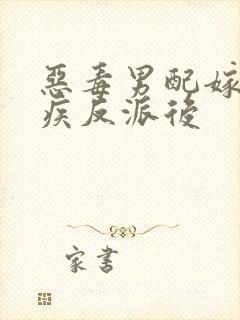 惡毒男配嫁
疾反派後
家書